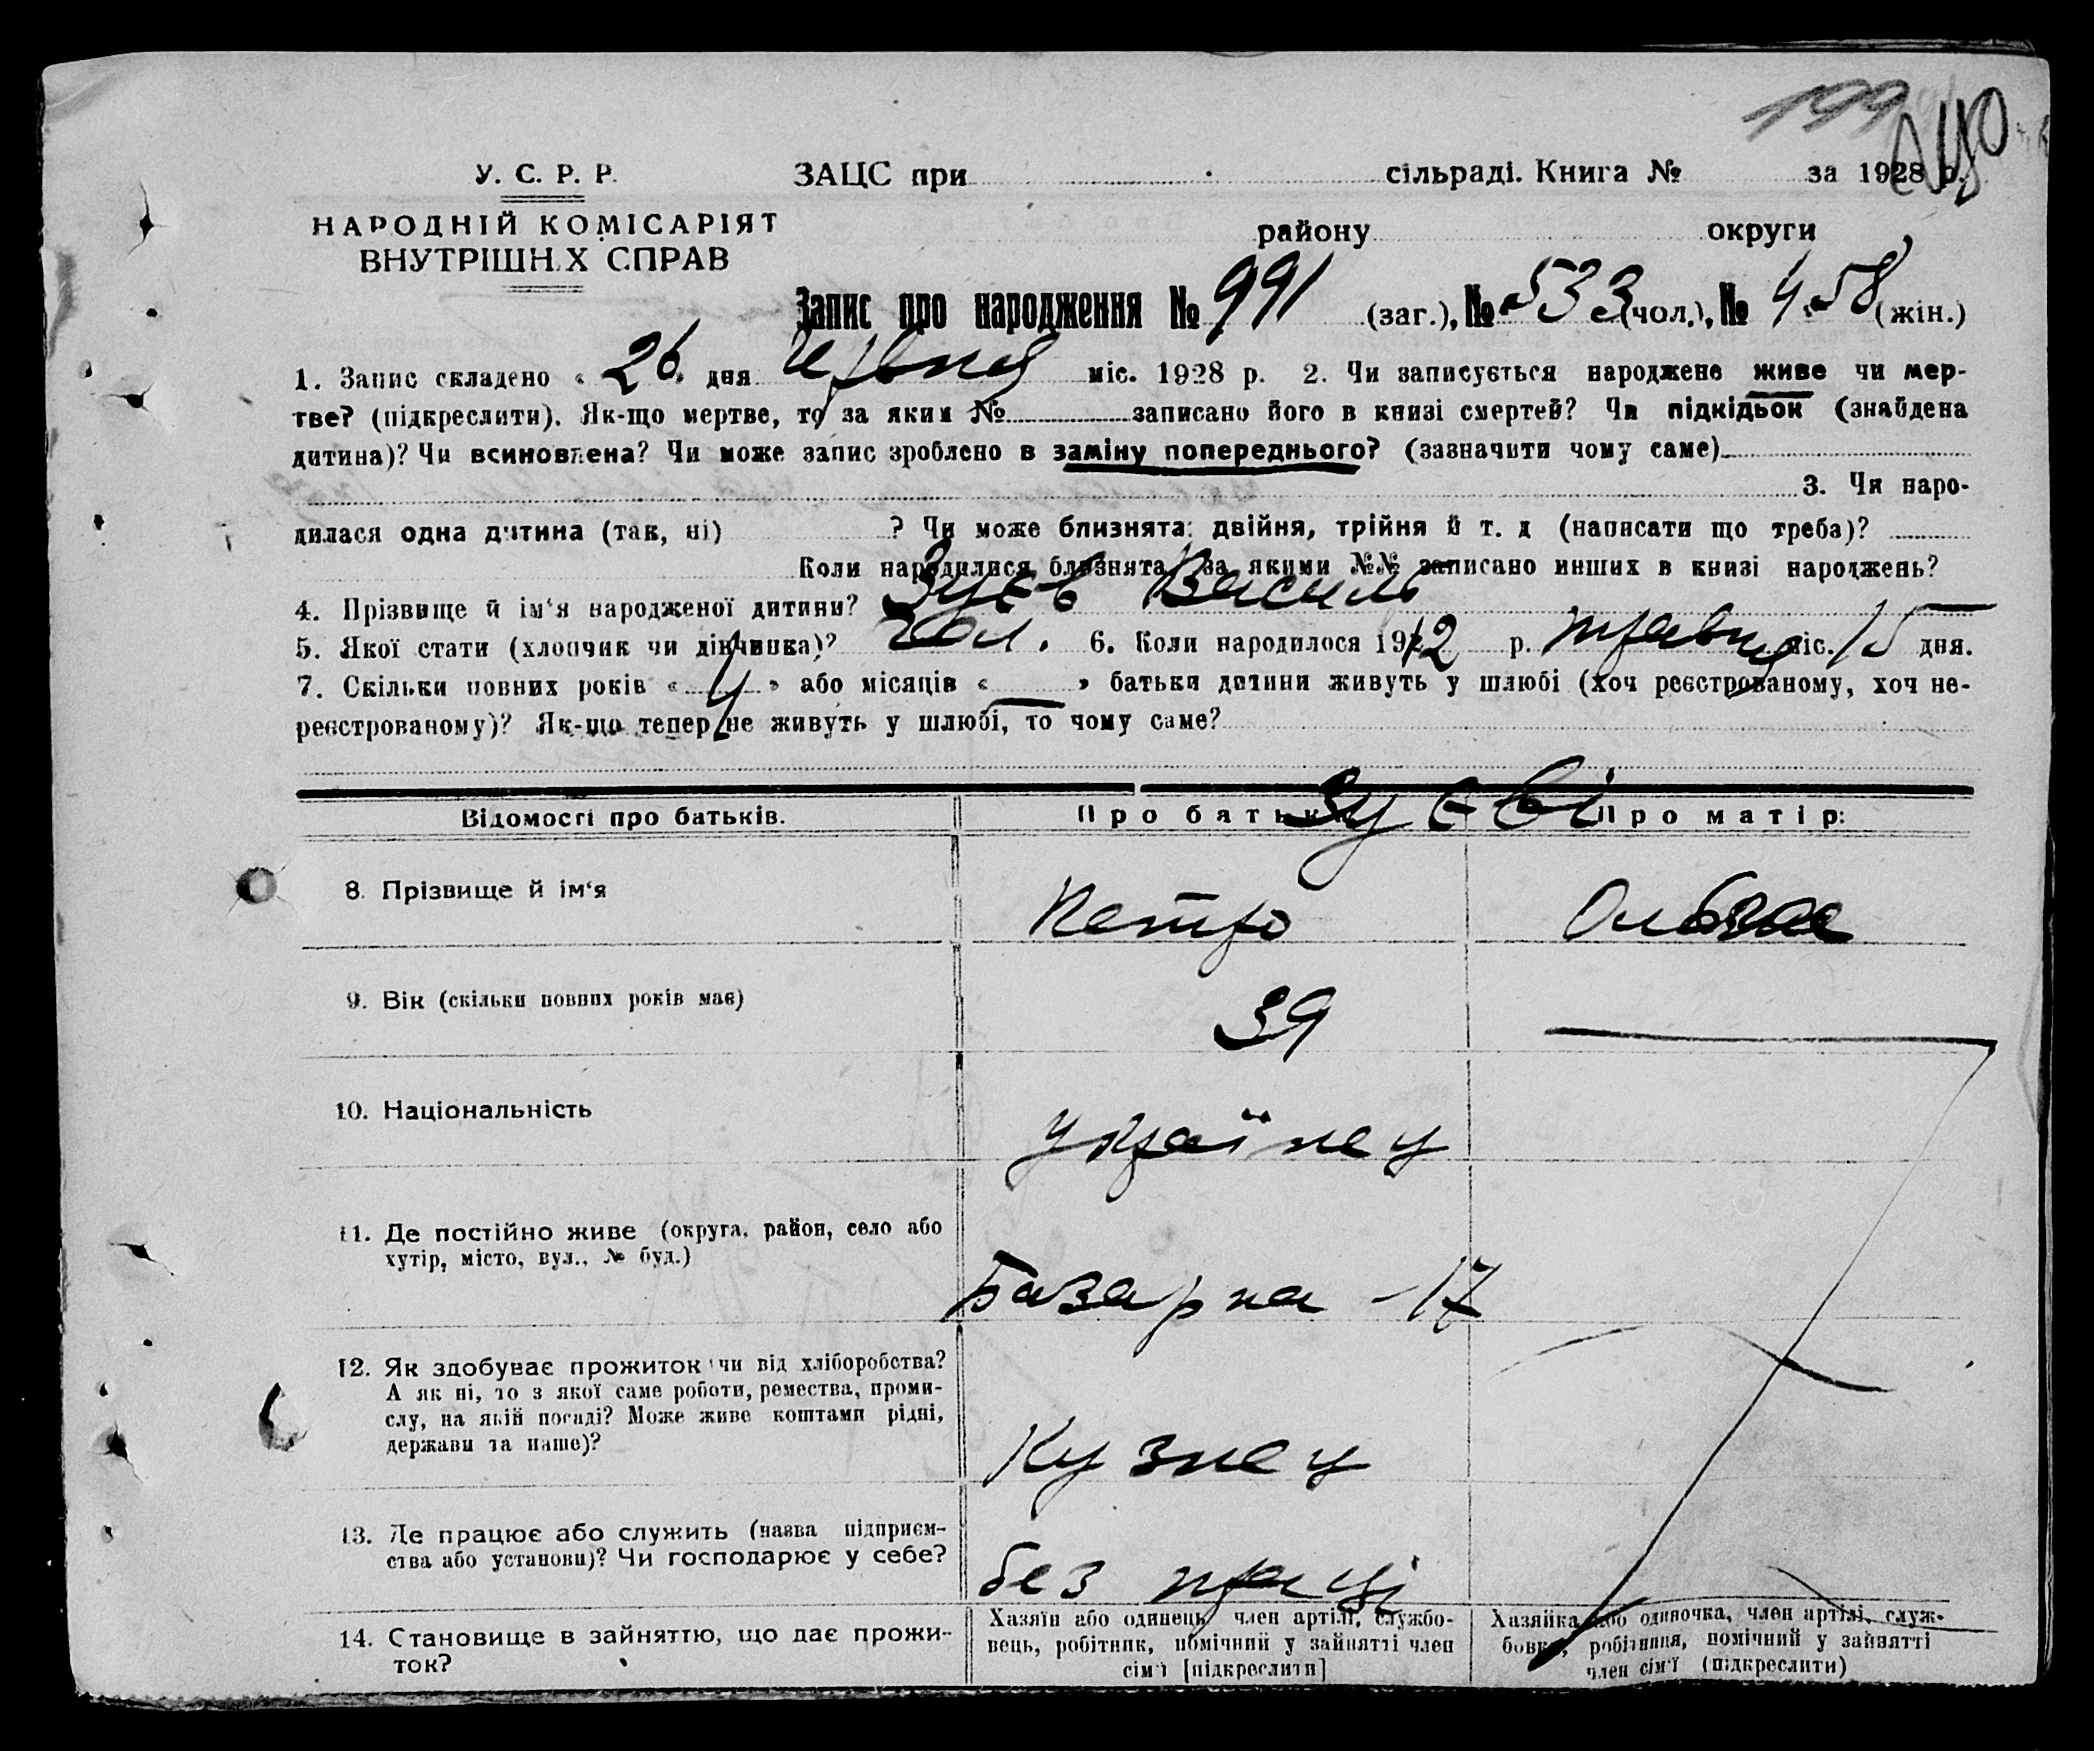 199
240
У. С. Р. Р. ЗАЦС при сільраді. Книга № за 1928 р.
НАРОДНІЙ КОМІСАРІЯТ
ВНУТРІШН.Х СПРАВ
району округи
Запис про народження № 991 (заг.), № 533 (чол.), № 458 (жін.)
1. Запис складено « 26 » дня Червня міс. 1928 р. 2. Чи записується народжене живе чи мер-
тве? (підкреслити). Як-що мертве, то за яким № записано його в книзі смертей? Чи підкідьок (знайдена
дитина)? Чи всиновлена? Чи може запис зроблено в заміну попереднього? (зазначити чому саме)
3. Чи наро-
дилася одна дитина (так, ні) ? Чи може близнята: двійня, трійня й т. д (написати що треба)?
Коли народилися близнята, за якими №№ записано инших в книзі народжень?
4. Прізвище й ім'я народженої дитини? Зуєв Василь
5. Якої стати (хлопчик чи дівчинка)? чол. 6. Коли народилося 1912 р. травня міс. 15 дня.
7. Скільки повних років « » або місяців « — » батьки дитини живуть у шлюбі (хоч реєстрованому, хоч не-
реєстрованому)? Як-що тепер не живуть у шлюбі, то чому саме?
Відомості про батьків. Про батька Зуєві Про матір:
8. Прізвище й ім'я Петро Ольга
9. Вік (скільки повних років має) 39 —
10. Національність українец
11. Де постійно живе (округа, район, село або
хутір, місто, вул., № буд.)
Базарна - 17
12. Як здобуває прожиток чи від хліборобства?
А як ні, то з якої саме роботи, ремества, проми-
слу, на якій посаді? Може живе коштами рідні,
держави та инше)?
Кузнец
13. Де працює або служить (назва підприєм-
ства або установи)? Чи господарює у себе?
без праці
14. Становище в зайняттю, що дає прожи-
ток?
Хазяїн або одинець, член артілі, службо-
вець, робітник, помічний у зайнятті член
сім'ї [підкреслити]
Хазяйка або одиночка, член артілі, служ-
бовка, робітниця, помічний у зайнятті
член сім'ї (підкреслити)